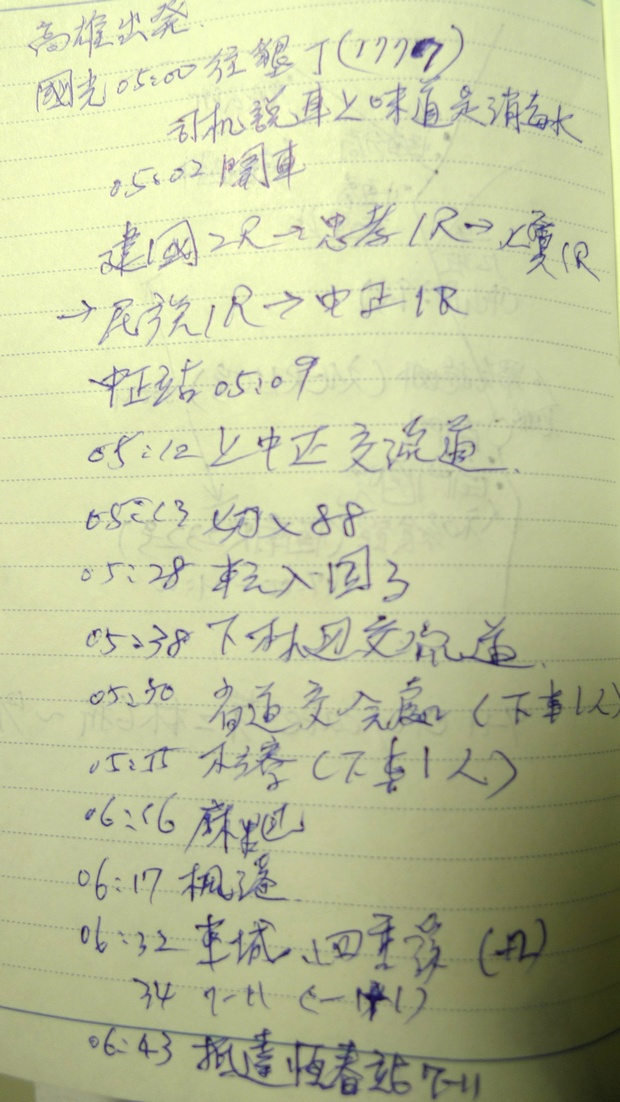 高雄出発
國光 05:00 往墾丁(1777)
司机說車上味道是消毒水
05:02 開車
建國2R→忠孝1R→
→民族1R→中正1R
中正站 05:09
05:12 上中正交流道.
05:13 切入88
05:28 転入国3
05:38 下林边交流道.
05:50 省道交会處 (下車1人)
05:55 枋寮(下車1人)
06:16
06:17 楓港.
06:32 車城、四重溪 (-2)
34 7-11
06:43 抵達恆春站7-11